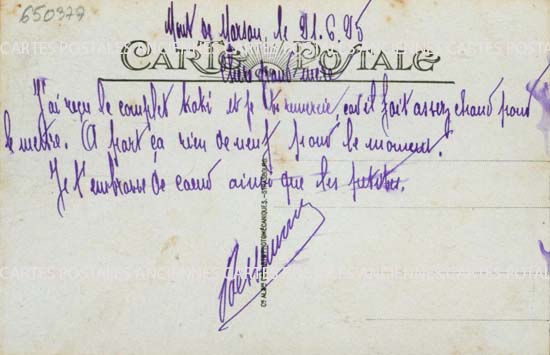 650377
Mont de Marsan, le 21.6.25
CARTE POSTALE
J'ai reçu le complet Kaki et je te remercie, car il fait assez chaud pour
le mettre. A part ça rien de neuf pour le moment.
Je t'embrasse de cœur ainsi que les petites.
CARTES POSTALES ANCIENNES